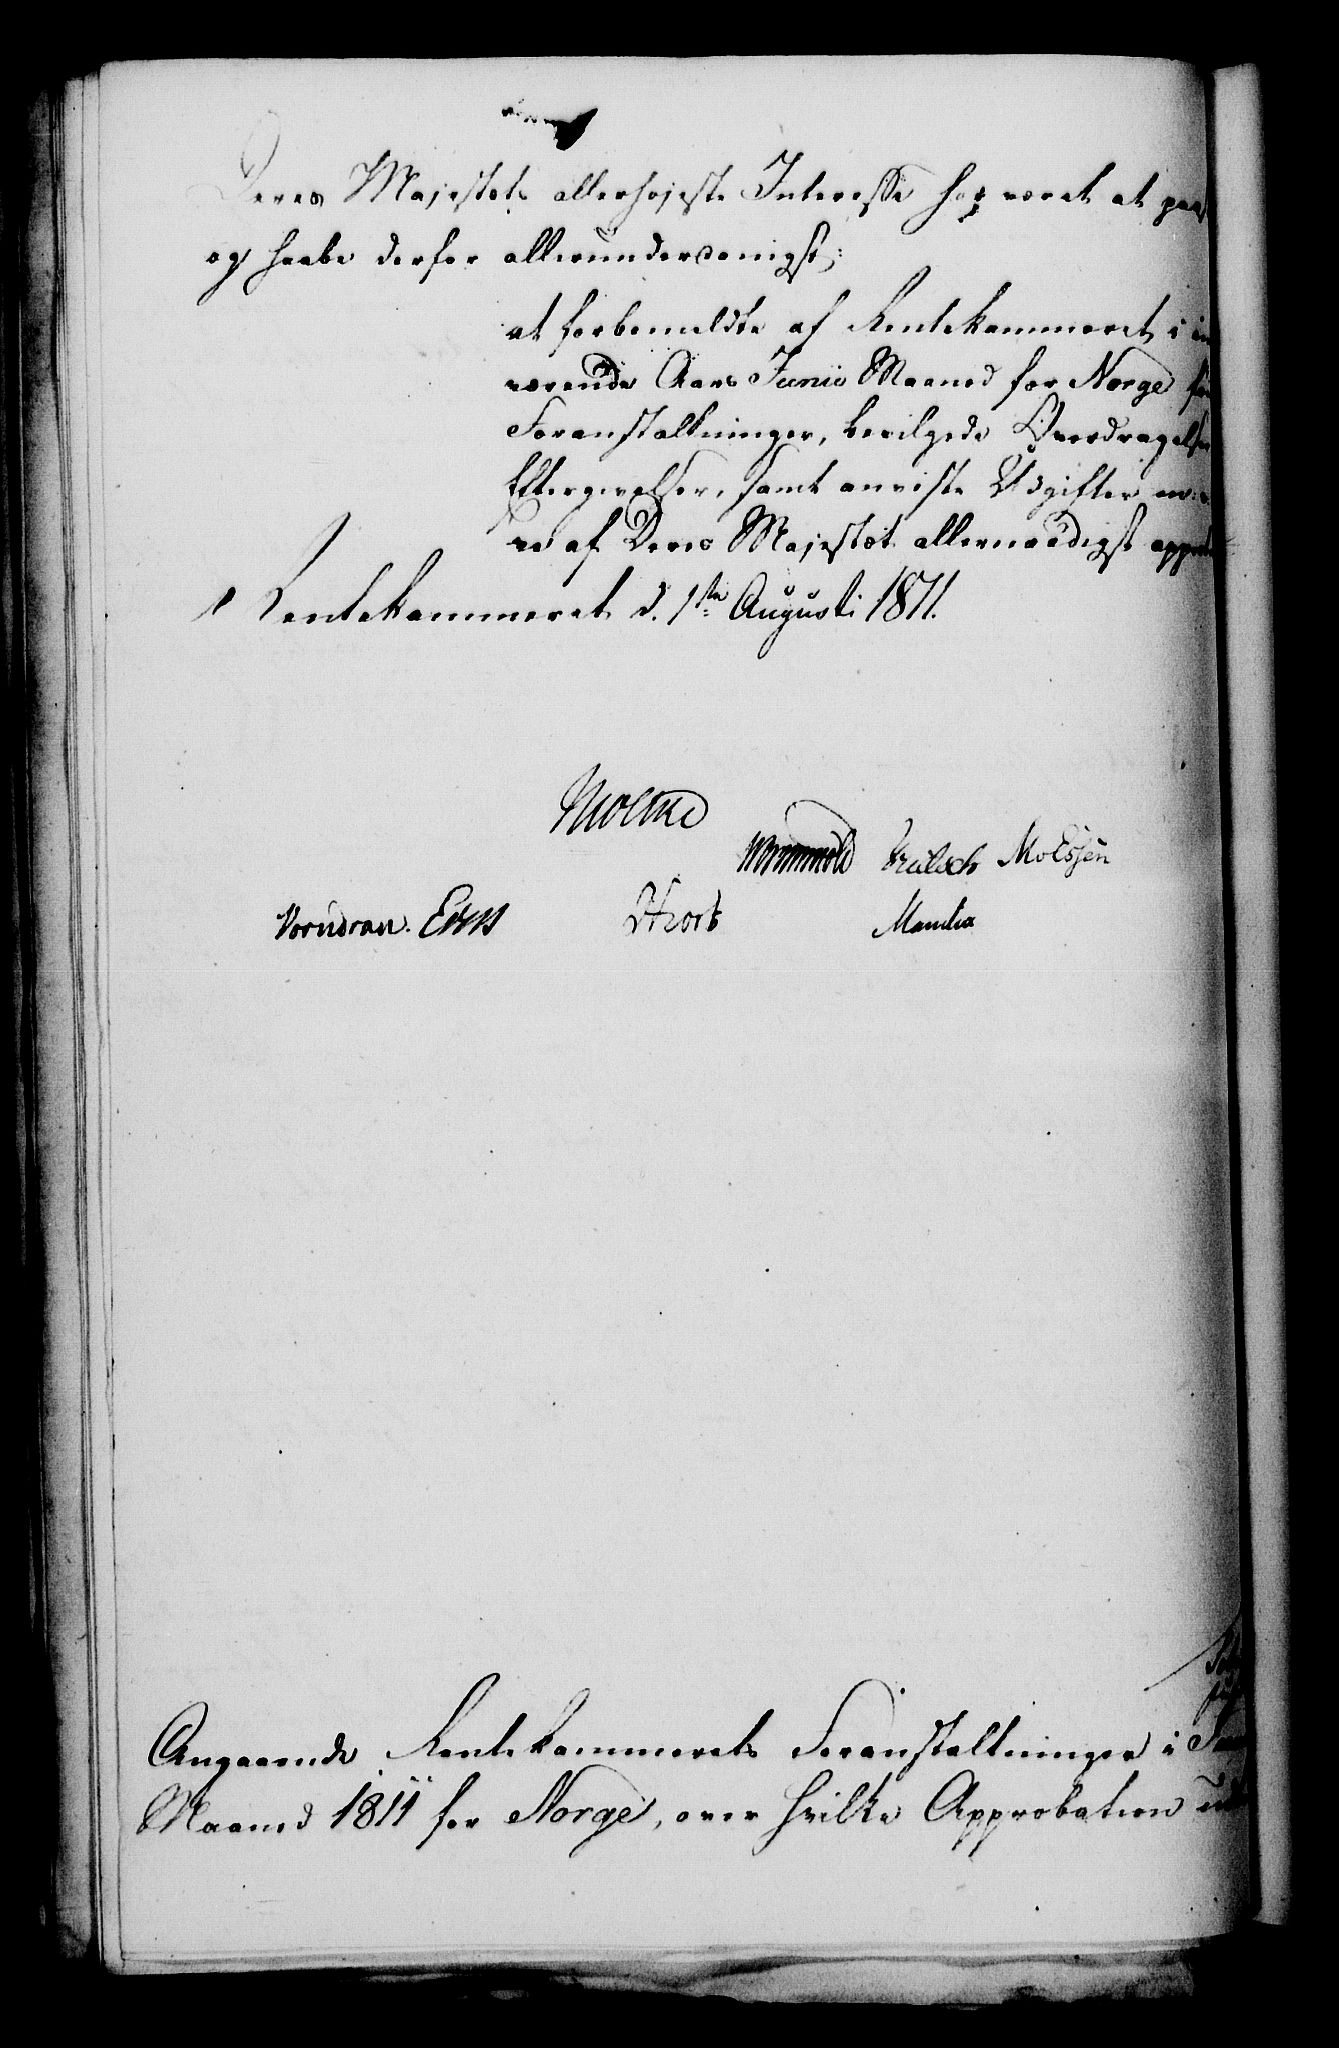 Deres Majestæts allerhøjeste Interesse har været at
og haabe derfor allerunderdanigst:
at forbemeldte af Rentekammeret i
værende Aars Junii Maaned for Norge
Foranstaltninger, bevilgede Overdragelser
Eftergivelser, samt anviste Udgifter
af Deres Majestæt allernaadigst
Rentekammeret d. 1ste Augusti 1811.
Moltke
Wormskiold
Vorndran.
Hiort
Mantha
Angaaende Rentekammerets Foranstaltninger i
Maaned 1811 for Norge, over hvilke Approbation